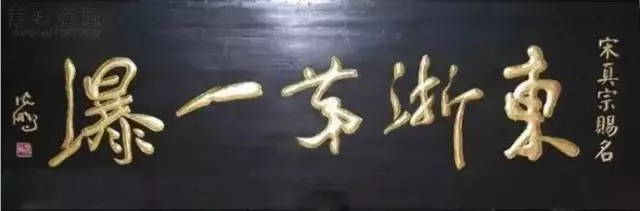 宋真宗賜名
東浙第一瀑
沈鹏